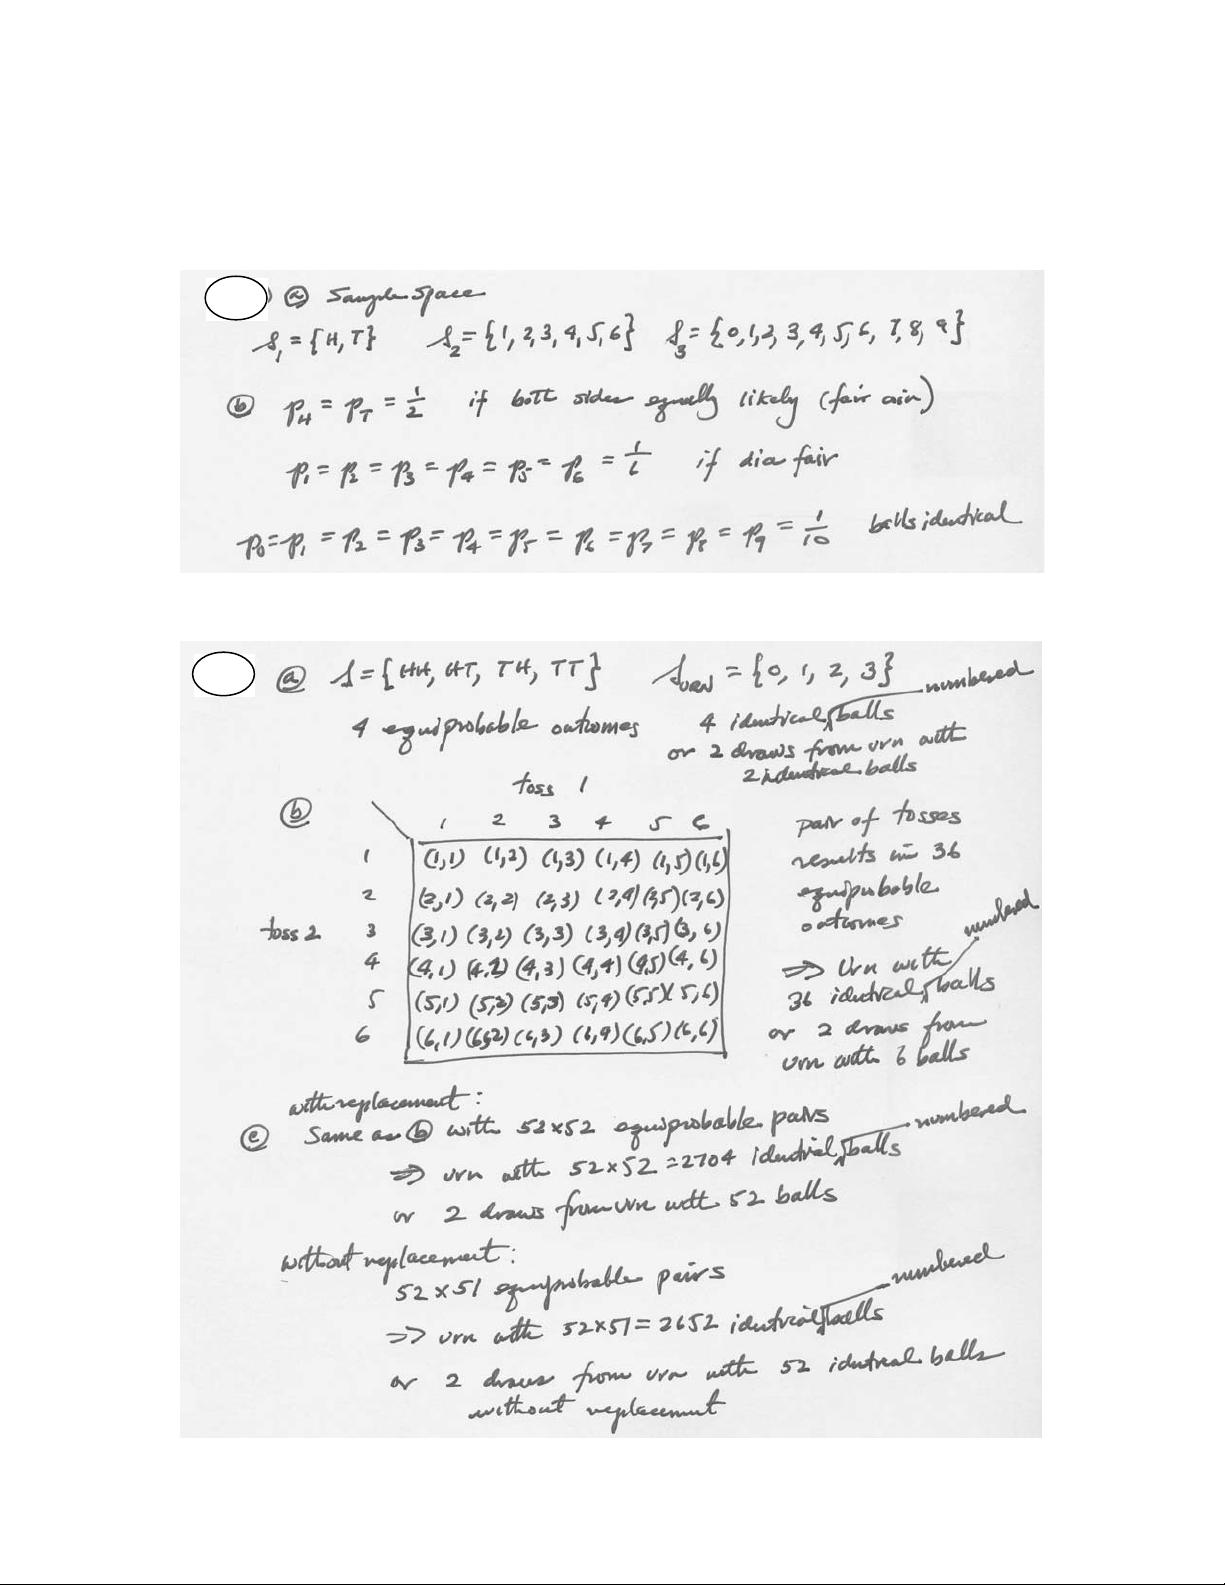 ⓐ Sample Space
S₁ = {H, T}   S₂ = {1, 2, 3, 4, 5, 6}   S₃ = {0, 1, 2, 3, 4, 5, 6, 7, 8, 9}
ⓑ p_H = p_T = 1/2 if both sides equally likely (fair coin)
p₁ = p₂ = p₃ = p₄ = p₅ = p₆ = 1/6 if die fair
p₀ = p₁ = p₂ = p₃ = p₄ = p₅ = p₆ = p₇ = p₈ = p₉ = 1/10 balls identical
ⓐ S = {HH, HT, TH, TT}   S_URN = {0, 1, 2, 3}
numbered
4 equiprobable outcomes   4 identical balls
or 2 draws from urn with
2 identical balls
ⓑ toss 1
1 2 3 4 5 6
1 (1,1) (1,2) (1,3) (1,4) (1,5) (1,6)
2 (2,1) (2,2) (2,3) (2,4) (2,5) (2,6)
toss 2 3 (3,1) (3,2) (3,3) (3,4) (3,5) (3,6)
4 (4,1) (4,2) (4,3) (4,4) (4,5) (4,6)
5 (5,1) (5,2) (5,3) (5,4) (5,5) (5,6)
6 (6,1) (6,2) (6,3) (6,4) (6,5) (6,6)
pair of tosses
results in 36
equiprobable
outcomes
numbered
⇒ Urn with
36 identical balls
or 2 draws from
urn with 6 balls
with replacement:
ⓒ Same as ⓑ with 52×52 equiprobable pairs
numbered
⇒ urn with 52×52 = 2704 identical balls
or 2 draws from urn with 52 balls
without replacement:
52×51 equiprobable pairs
numbered
⇒ urn with 52×51 = 2652 identical balls
or 2 draws from urn with 52 identical balls
without replacement